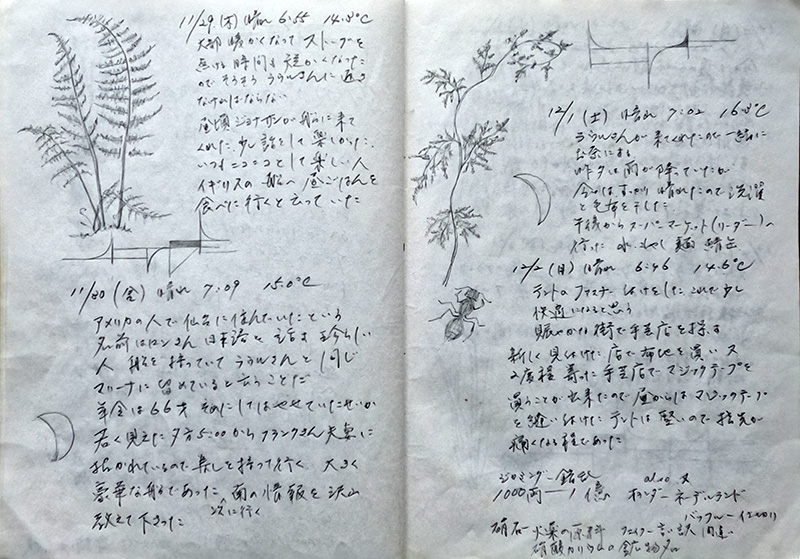 11/29 (木) 晴れ 6:55 14.8°C
大部暖かくなって ストーブを
焦げる時間も短かくなった
のでそろそろ ラウルさんに返さ
なければならない
昼頃ジョナサンが船に来て
くれた 少し話をして楽しかった
いつもニコニコとして楽しい人
イギリスの船へ昼ごはんを
食べに行くと云っていた
11/30 (金) 晴れ 7:09 15.0°C
アメリカの人で仙台に住んでいたという
名前はロンさん 日本語を話す珍らしい
人 船を持っていて ラウルさんと同じ
マリーナに留めていると云うことだ
年令は66才 そのわりにはやせていたせいか
若く見えた 夕方5:00からフランクさん夫妻に
招かれているので 楽しみを持って行く 大きく
豪華な船であった 南の情報を沢山
次に行く
教えて下さった
12/1 (土) 晴れ 7:02 16.8°C
ラウルさんが来てくれたので一緒に
お茶にする
昨夕は雨が降っていたが
今日はすっかり晴れたので洗濯
と毛布を干した
午後からスーパーマーケット(リーダー)へ
行った 水 もやし 麺 鯖缶
12/2 (日) 晴れ 6:46 14.6°C
テントのファスナー付けをした これで少し
快適になると思う
賑やかな街で手芸店を探す
新しく見付けた店で布地を買い 又
2度程寄った手芸店でマジックテープを
買うことが出来たので 昼からはマジックテープ
を縫い付けた テントは堅いので指先が
痛くなる程であった
1000両 — 1億 オランダ ネーデルランド
硝石 火薬の原料
硝酸カリウムの鉱物名